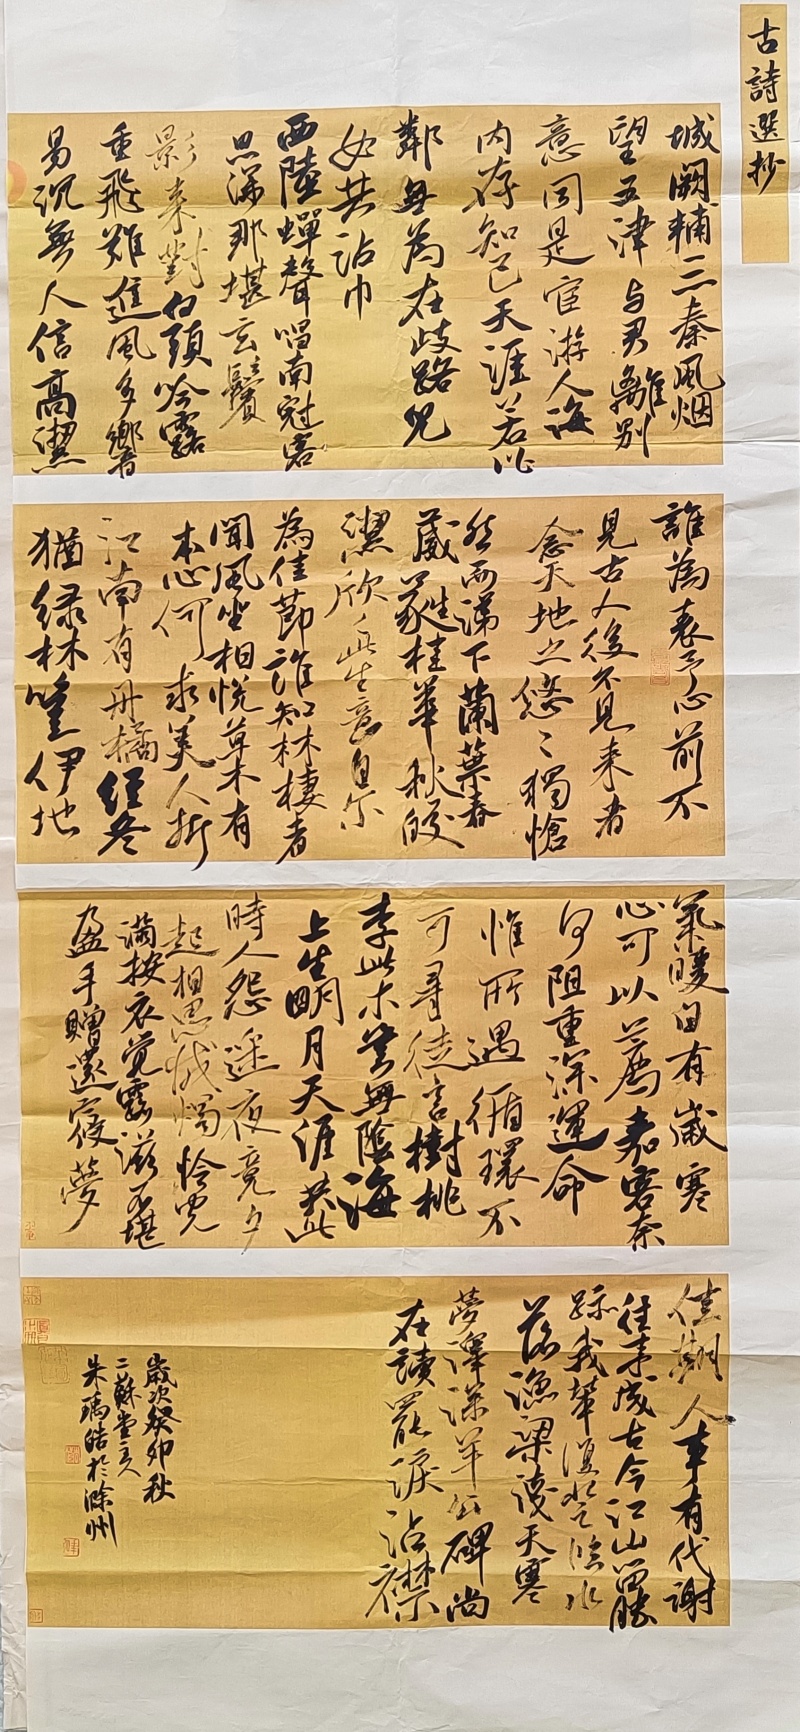 古詩選抄
城闕輔三秦風烟
望五津与君離別
意同是宦游人海
內存知己天涯若比
鄰無為在歧路兒
女共沾巾
西陸蟬聲唱南冠客
思深那堪玄鬢
影來對白頭吟露
重飛難進風多響
易沉無人信高潔
誰為表予心前不
見古人後不見来者
念天地之悠〻獨愴
然而涕下蘭葉春
葳蕤桂華秋皎
潔欣此生意自尔
為佳節誰知林棲者
聞風坐相悅草木有
本心何求美人折
江南有丹橘經冬
猶緑林豈伊地
氣暖自有歲寒
心可以薦嘉客奈
何阻重深運命
惟所遇循環不
可尋徒言樹桃
李此木豈無陰海
上生明月天涯共此
時人怨遥夜竟夕
起相思滅燭憐光
滿披衣覺露滋不堪
盈手贈還寢夢
佳期人事有代謝
往来成古今江山留勝
跡我輩復登臨水
落漁梁淺天寒
夢澤深羊公碑尚
在讀罷淚沾襟
歲次癸卯秋
二蘇堂主人
朱瑀皓於滁州